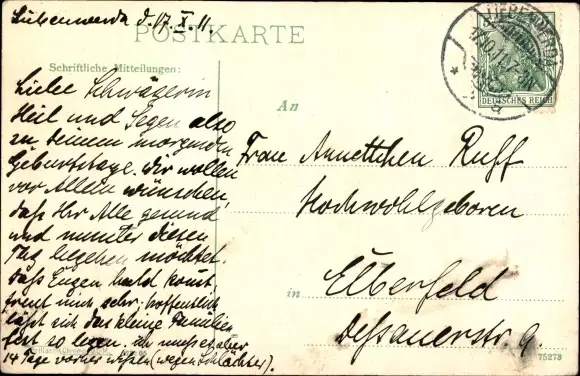 Liebenwerda d. 17. X. 11.
POSTKARTE
LIEBENWERDA
17.10.11. 7-8N
DEUTSCHES REICH
Schriftliche Mitteilungen:
Liebe Schwägerin
Heil und Segen also
zu Deinem morgenden
Geburtstage. Wir wollen
vor Allem wünschen,
daß Ihr Alle gesund
und munter diesen
Tag begehen möchtet.
Daß Eugen bald kommt
freut mich sehr; hoffentlich
läßt sich das kleine Familien
fest so legen. Ich muß es aber
14 Tage vorher wissen (wegen Schlächter).
An
Frau Annettchen Ruff
Hochwohlgeboren
in Elberfeld
Dessauerstr. 9.
75273